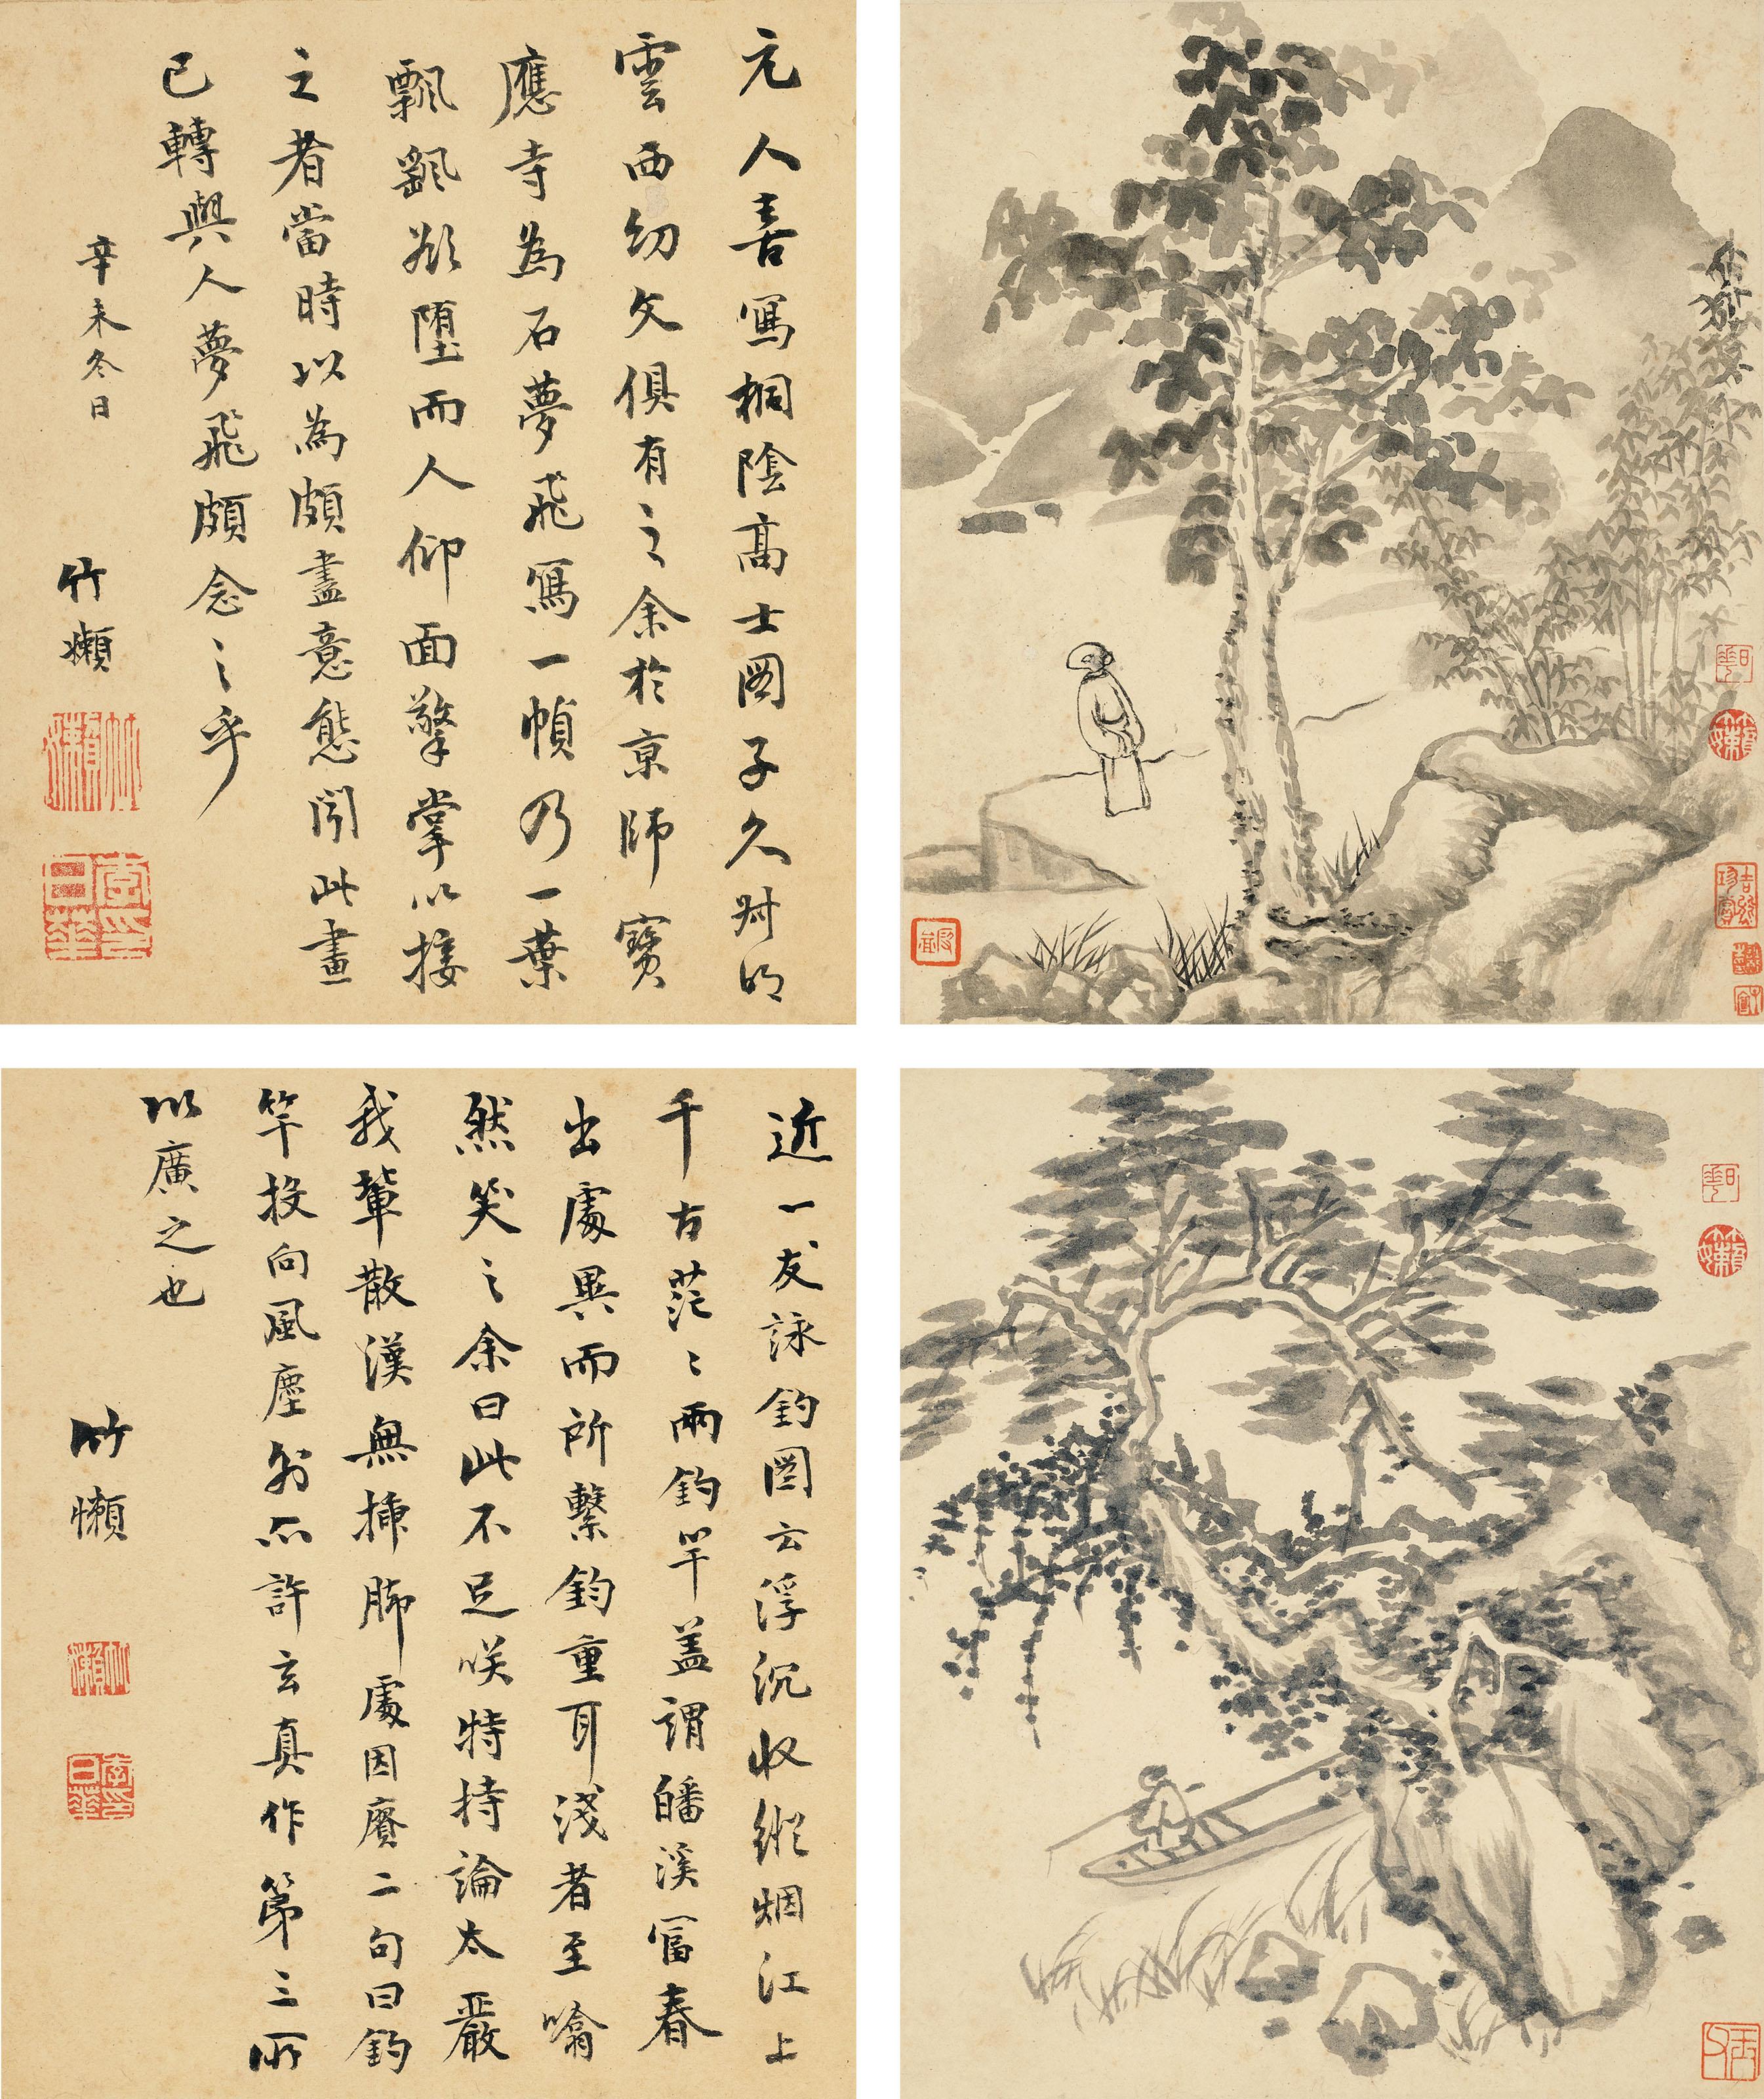 元人喜寫桐陰高士圖子久叔明
雲西幼文俱有之余於京師寶
應寺為石夢飛寫一幀乃一葉
飄颻欲墮而人仰面擎掌以接
之者當時以為頗盡意態聞此畫
已轉與人夢飛頗念之乎
辛未冬日
竹嬾
竹嬾
李日華印
日華
近一友詠釣圖云浮沉收縱烟江上
千古茫〻兩釣竿蓋謂皤溪富春
出處異而所繫鈞重耳淺者至噏
然笑之余曰此不足咲特持論太嚴
我輩散漢無揷脚處因賡二句曰釣
竿投向風塵外不許玄真作第三所
以廣之也
竹懶
竹嬾
李日華印
日華